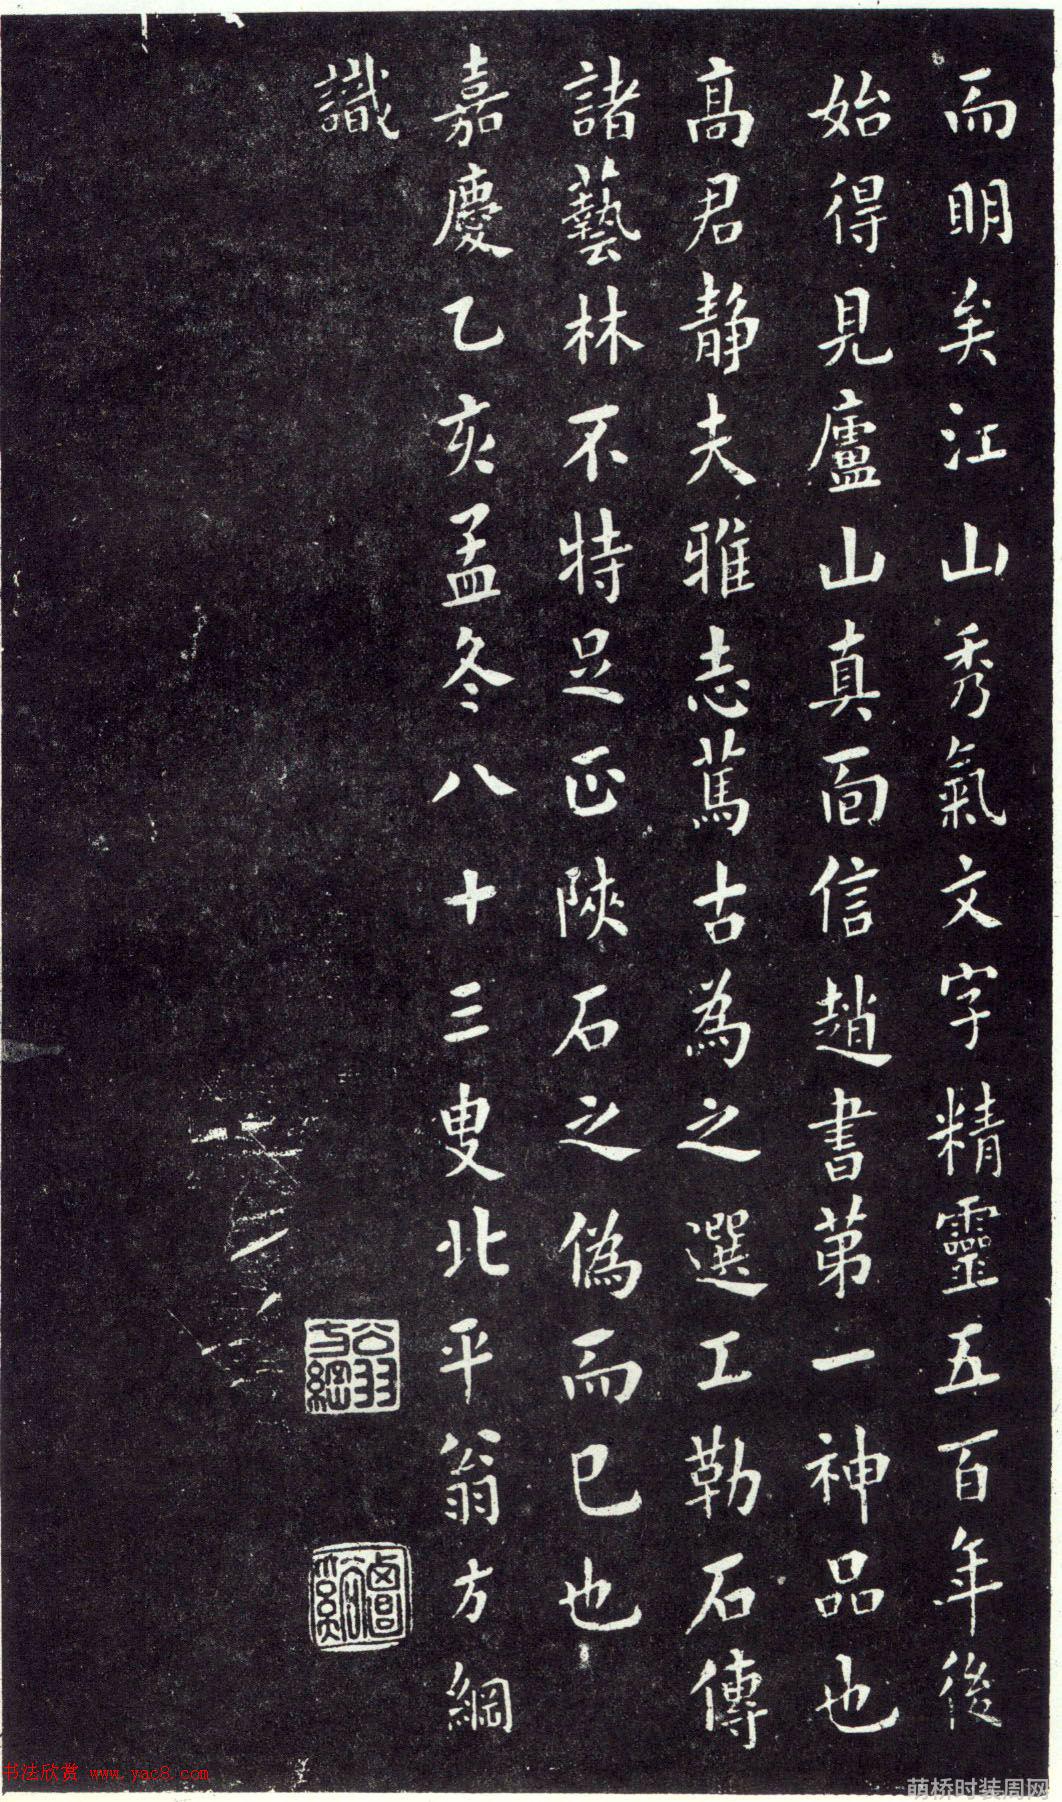 而明矣江山秀氣文字精靈五百年後
始得見廬山真面信趙書第一神品也
髙君静夫雅志篤古為之選工勒石傳
諸藝林不特足正陝石之偽而已也
嘉慶乙亥孟冬八十三叟北平翁方綱
識
翁方綱
书法欣赏 www.yac8.com
萌桥时装周网